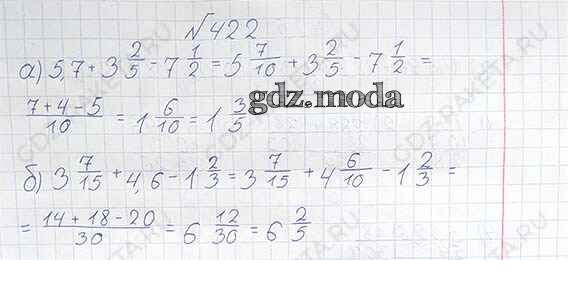 №422
а) 5,7 + 3 2/5 - 7 1/2 = 5 7/10 + 3 2/5 - 7 1/2 =
(7+4-5)/10 = 1 6/10 = 1 3/5
gdz.moda
б) 3 7/15 + 4,6 - 1 2/3 = 3 7/15 + 4 6/10 - 1 2/3 =
= (14+18-20)/30 = 6 12/30 = 6 2/5
GDZ-RAKETA.RU